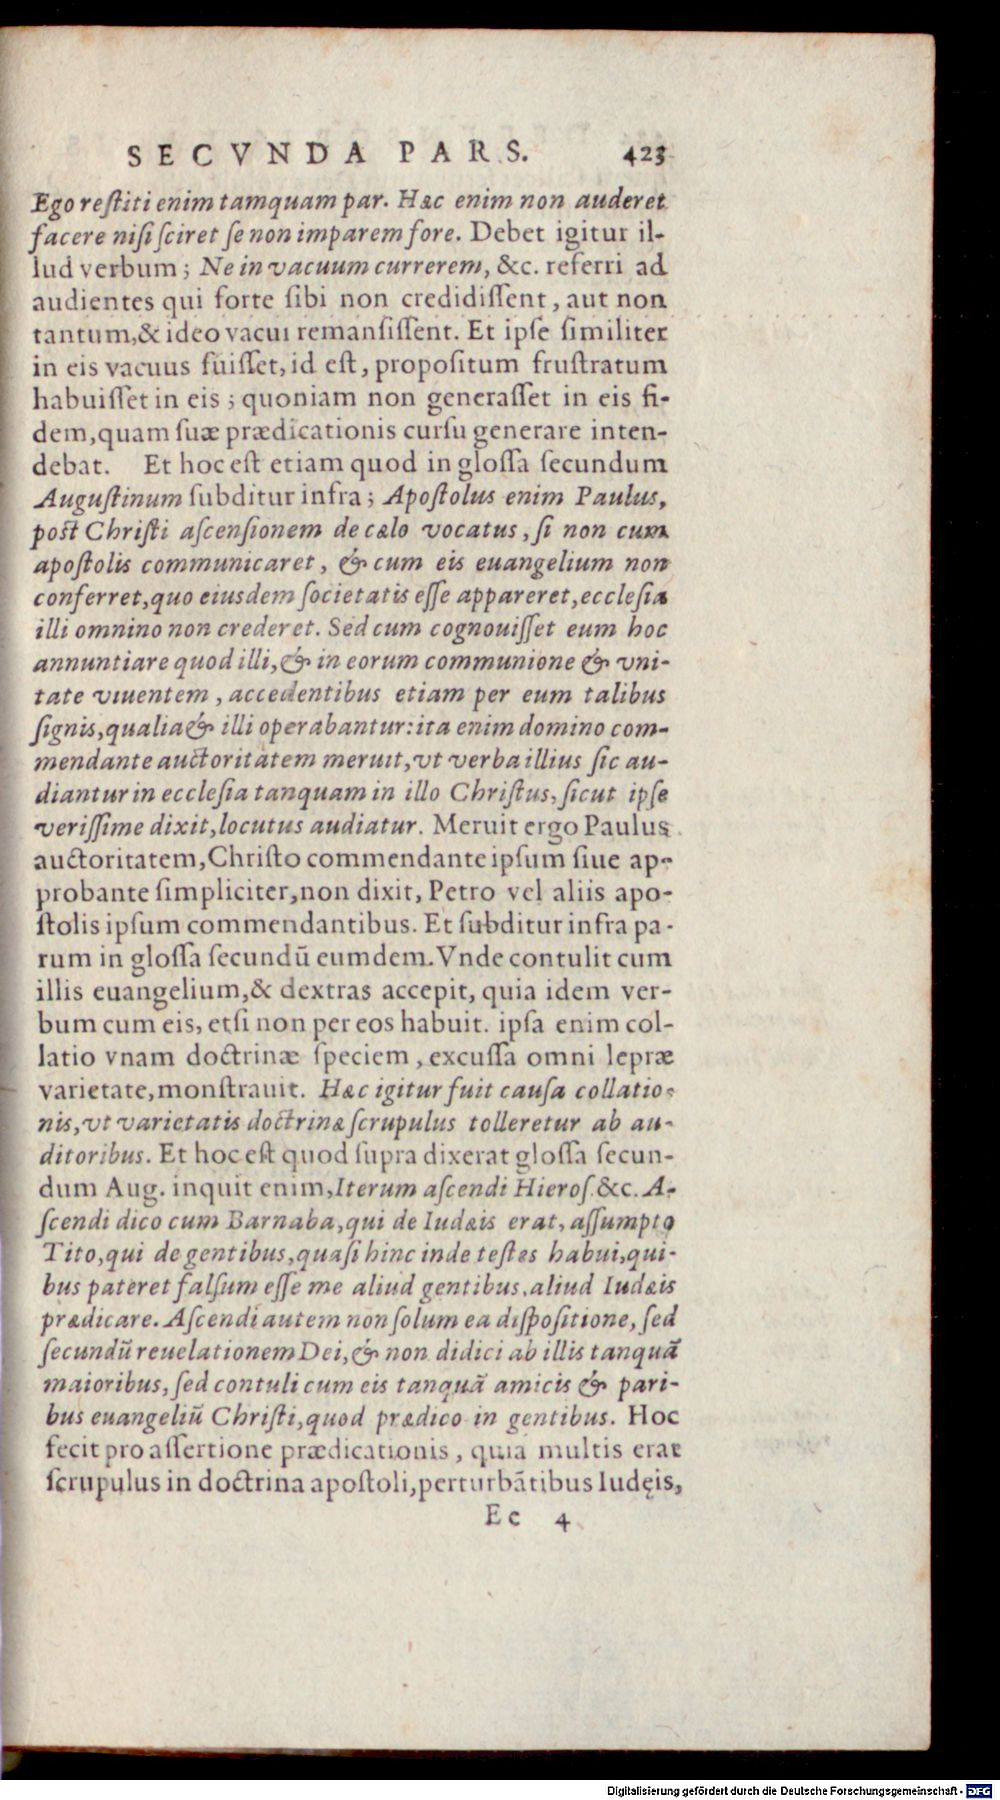 SECVNDA PARS. 423
Ego reſtiti enim tamquam par. Hæc enim non auderet
facere niſi ſciret ſe non imparem fore. Debet igitur il-
lud verbum; Ne in vacuum currerem, &c. referri ad
audientes qui forte ſibi non credidiſſent, aut non
tantum,& ideo vacui remanſiſſent. Et ipſe ſimiliter
in eis vacuus fuiſſet, id eſt, propoſitum fruſtratum
habuiſſet in eis; quoniam non generaſſet in eis fi-
dem,quam ſuæ prædicationis curſu generare inten-
debat. Et hoc eſt etiam quod in gloſſa ſecundum
Auguſtinum ſubditur infra; Apoſtolus enim Paulus,
poſt Chriſti aſcenſionem de cælo vocatus, ſi non cum
apoſtolis communicaret, & cum eis euangelium non
conferret,quo eiusdem ſocietatis eſſe appareret,eccleſia
illi omnino non crederet. Sed cum cognouiſſet eum hoc
annuntiare quod illi,& in eorum communione & vni-
tate viuentem, accedentibus etiam per eum talibus
ſignis,qualia & illi operabantur:ita enim domino com-
mendante auctoritatem meruit,vt verba illius ſic au-
diantur in eccleſia tanquam in illo Chriſtus, ſicut ipſe
veriſſime dixit,locutus audiatur. Meruit ergo Paulus
auctoritatem,Chriſto commendante ipſum ſiue ap-
probante ſimpliciter,non dixit, Petro vel aliis apo-
ſtolis ipſum commendantibus. Et ſubditur infra pa-
rum in gloſſa ſecundũ eumdem. Vnde contulit cum
illis euangelium,& dextras accepit, quia idem ver-
bum cum eis, etſi non per eos habuit. ipſa enim col-
latio vnam doctrinæ ſpeciem, excuſſa omni lepræ
varietate,monſtrauit. Hæc igitur fuit cauſa collatio-
nis,vt varietatis doctrinæ ſcrupulus tolleretur ab au-
ditoribus. Et hoc eſt quod ſupra dixerat gloſſa ſecun-
dum Aug. inquit enim,Iterum aſcendi Hieroſ. &c. A-
ſcendi dico cum Barnaba,qui de Iudæis erat, aſſumpto
Tito,qui de gentibus,quaſi hinc inde teſtes habui,qui-
bus pateret falſum eſſe me aliud gentibus,aliud Iudæis
prædicare. Aſcendi autem non ſolum ea diſpoſitione, ſed
ſecundũ reuelationem Dei,& non didici ab illis tanquã
maioribus, ſed contuli cum eis tanquã amicis & pari-
bus euangeliũ Chriſti,quod prædico in gentibus. Hoc
fecit pro aſſertione prædicationis, quia multis erat
ſcrupulus in doctrina apoſtoli,perturbãtibus Iudęis,
Ee 4
Digitalisierung gefördert durch die Deutsche Forschungsgemeinschaft - DFG